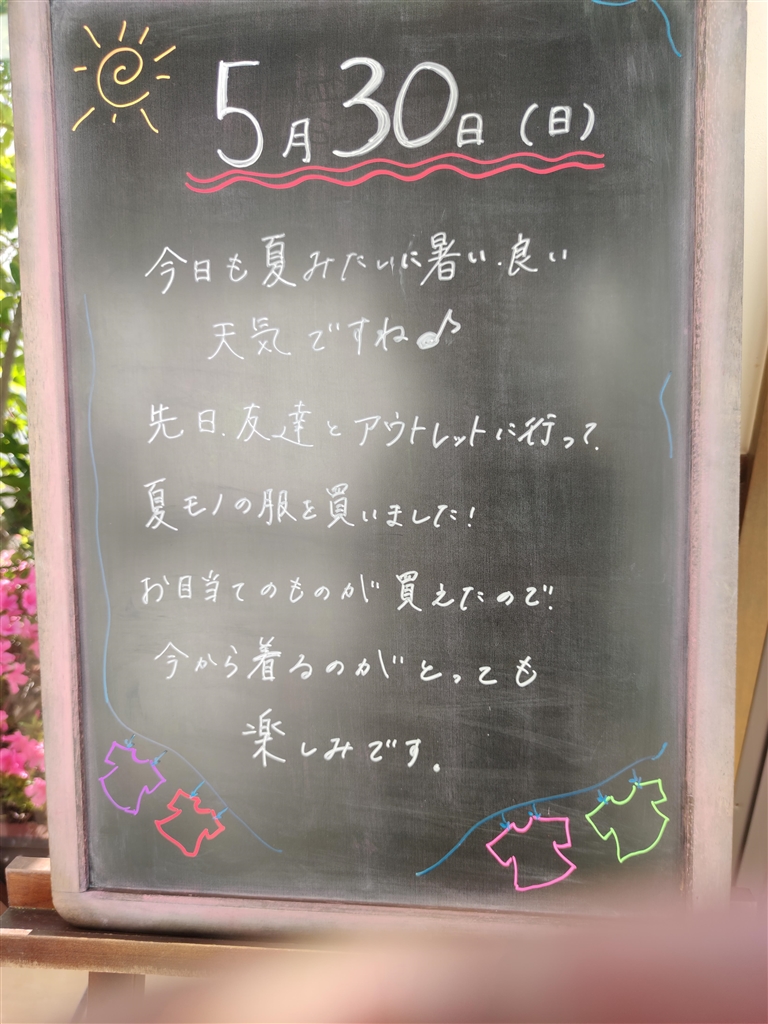 5月30日(日)
今日も夏みたいに暑い、良い
天気ですね♪
先日、友達とアウトレットに行って、
夏モノの服を買いました!
お目当てのものが買えたので、
今から着るのがとっても
楽しみです。